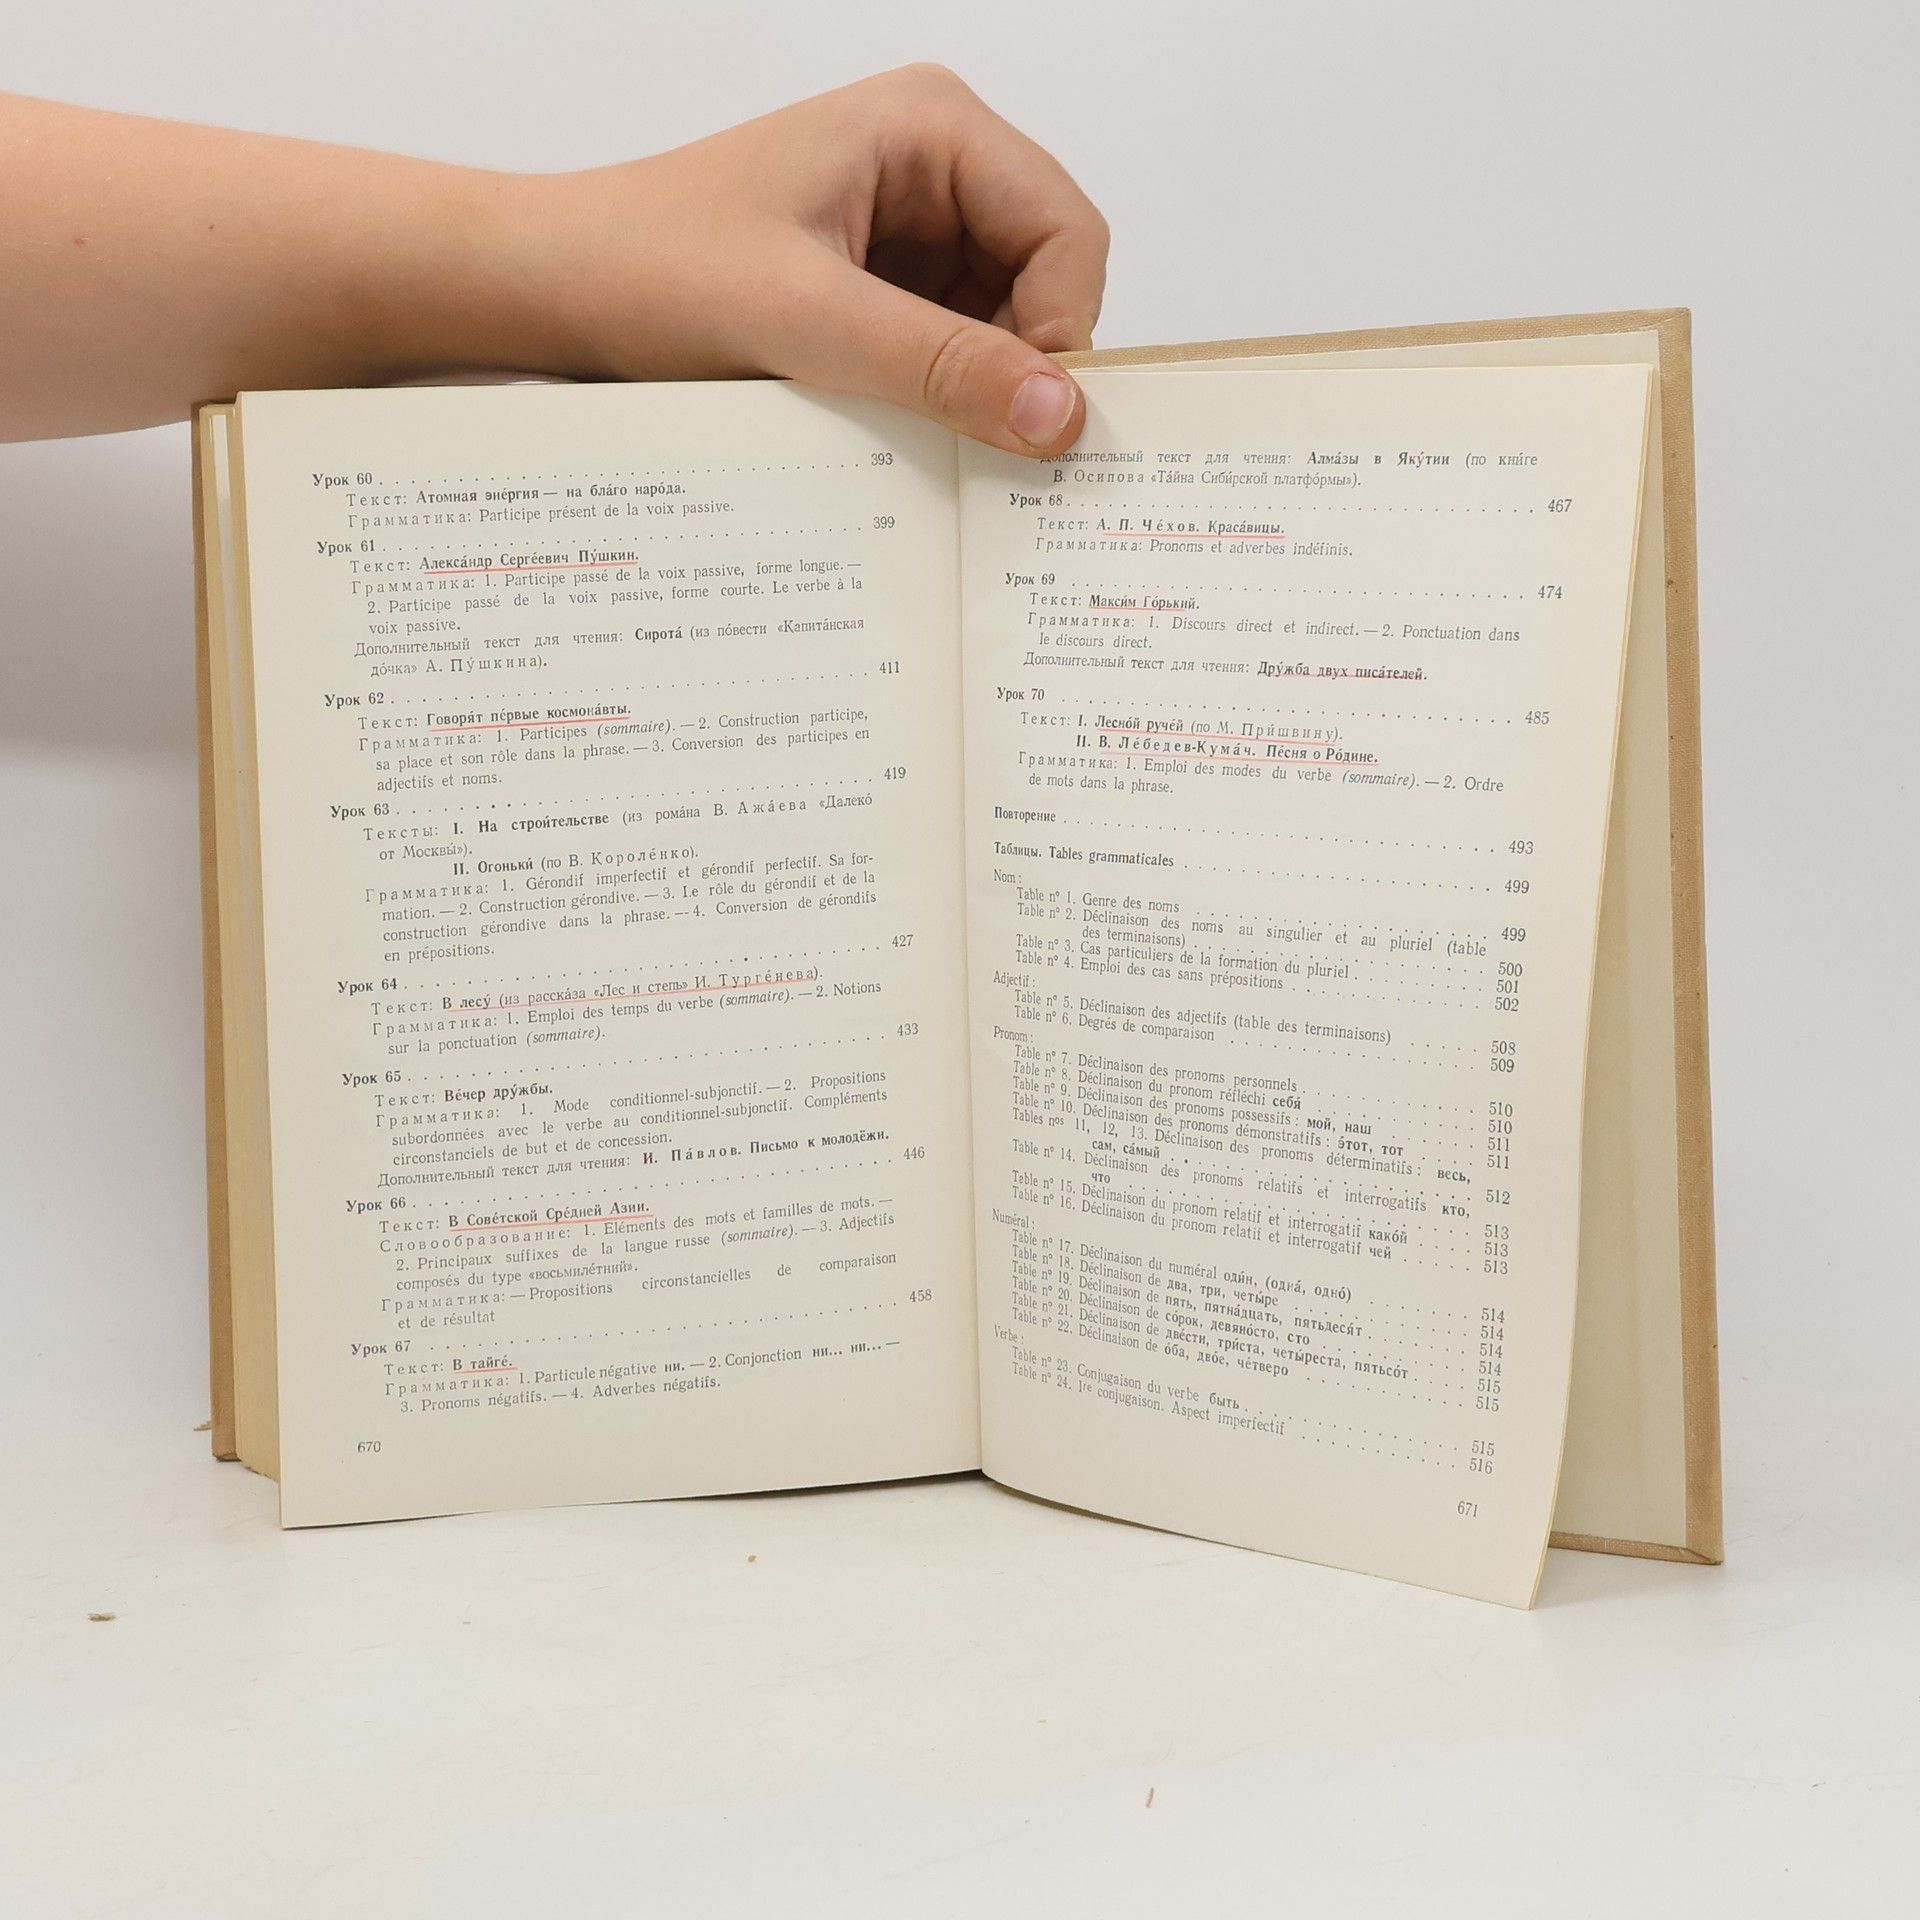 Урок 60 . . . . . . . . . . . . . . . . . . . . . . . . . . . . 393
Текст: Атомная эне́ргия — на бла́го наро́да.
Грамматика: Participe présent de la voix passive.
Урок 61 . . . . . . . . . . . . . . . . . . . . . . . . . . . . 399
Текст: Алекса́ндр Серге́евич Пу́шкин.
Грамматика: 1. Participe passé de la voix passive, forme longue. —
2. Participe passé de la voix passive, forme courte. Le verbe à la
voix passive.
Дополнительный текст для чтения: Сирота́ (из по́вести «Капита́нская
до́чка» А. Пу́шкина).
Урок 62 . . . . . . . . . . . . . . . . . . . . . . . . . . . . 411
Текст: Говоря́т пе́рвые космона́вты.
Грамматика: 1. Participes (sommaire). — 2. Construction participe,
sa place et son rôle dans la phrase. — 3. Conversion des participes en
adjectifs et noms.
Урок 63 . . . . . . . . . . . . . . . . . . . . . . . . . . . . 419
Тексты: I. На строи́тельстве (из рома́на В. Ажа́ева «Далеко́
от Москвы́»).
II. Огоньки́ (по В. Короле́нко).
Грамматика: 1. Gérondif imperfectif et gérondif perfectif. Sa for-
mation. — 2. Construction gérondive. — 3. Le rôle du gérondif et de la
construction gérondive dans la phrase. — 4. Conversion de gérondifs
en prépositions.
Урок 64 . . . . . . . . . . . . . . . . . . . . . . . . . . . . 427
Текст: В лесу́ (из расска́за «Лес и степь» И. Турге́нева).
Грамматика: 1. Emploi des temps du verbe (sommaire). — 2. Notions
sur la ponctuation (sommaire).
Урок 65 . . . . . . . . . . . . . . . . . . . . . . . . . . . . 433
Текст: Ве́чер дру́жбы.
Грамматика: 1. Mode conditionnel-subjonctif. — 2. Propositions
subordonnées avec le verbe au conditionnel-subjonctif. Compléments
circonstanciels de but et de concession.
Дополнительный текст для чтения: И. Па́влов. Письмо к молодёжи.
Урок 66 . . . . . . . . . . . . . . . . . . . . . . . . . . . . 446
Текст: В Сове́тской Сре́дней Азии.
Словообразование: 1. Eléments des mots et familles de mots. —
2. Principaux suffixes de la langue russe (sommaire). — 3. Adjectifs
composés du type «восьмиле́тний».
Грамматика: — Propositions circonstancielles de comparaison
et de résultat
Урок 67 . . . . . . . . . . . . . . . . . . . . . . . . . . . . 458
Текст: В тайге́.
Грамматика: 1. Particule négative ни. — 2. Conjonction ни... ни... —
3. Pronoms négatifs. — 4. Adverbes négatifs.
670
Дополнительный текст для чтения: Алма́зы в Яку́тии (по кни́ге
В. Осипова «Та́йна Сиби́рской платфо́рмы»).
Урок 68 . . . . . . . . . . . . . . . . . . . . . . . . . . . . 467
Текст: А. П. Че́хов. Краса́вицы.
Грамматика: Pronoms et adverbes indéfinis.
Урок 69 . . . . . . . . . . . . . . . . . . . . . . . . . . . . 474
Текст: Макси́м Го́рький.
Грамматика: 1. Discours direct et indirect. — 2. Ponctuation dans
le discours direct.
Дополнительный текст для чтения: Дру́жба двух писа́телей.
Урок 70 . . . . . . . . . . . . . . . . . . . . . . . . . . . . 485
Текст: I. Лесно́й руче́й (по М. При́швину).
II. В. Ле́бедев-Кума́ч. Пе́сня о Ро́дине.
Грамматика: 1. Emploi des modes du verbe (sommaire). — 2. Ordre
de mots dans la phrase.
Повторение . . . . . . . . . . . . . . . . . . . . . . . . . . 493
Таблицы. Tables grammaticales . . . . . . . . . . . . . . . . . . 499
Nom :
Table nº 1. Genre des noms . . . . . . . . . . . . . . . . . . 499
Table nº 2. Déclinaison des noms au singulier et au pluriel (table
des terminaisons) . . . . . . . . . . . . . . . . . . 500
Table nº 3. Cas particuliers de la formation du pluriel . . . . . . . . 501
Table nº 4. Emploi des cas sans prépositions . . . . . . . . . . . . 502
Adjectif :
Table nº 5. Déclinaison des adjectifs (table des terminaisons) . . . . . 508
Table nº 6. Degrés de comparaison . . . . . . . . . . . . . . . . 509
Pronom :
Table nº 7. Déclinaison des pronoms personnels . . . . . . . . . . . 510
Table nº 8. Déclinaison du pronom réfléchi себя́ . . . . . . . . . . 510
Table nº 9. Déclinaison des pronoms possessifs : мой, наш . . . . . . 511
Table nº 10. Déclinaison des pronoms démonstratifs : э́тот, тот . . . . 511
Tables nos 11, 12, 13. Déclinaison des pronoms déterminatifs : весь,
сам, са́мый . . . . . . . . . . . . . . . . . . 512
Table nº 14. Déclinaison des pronoms relatifs et interrogatifs кто,
что . . . . . . . . . . . . . . . . . . 513
Table nº 15. Déclinaison du pronom relatif et interrogatif како́й . . . . 513
Table nº 16. Déclinaison du pronom relatif et interrogatif чей . . . . . 513
Numéral :
Table nº 17. Déclinaison du numéral оди́н, (одна́, одно́) . . . . . . . 514
Table nº 18. Déclinaison de два, три, четы́ре . . . . . . . . . . . 514
Table nº 19. Déclinaison de пять, пятна́дцать, пятьдеся́т . . . . . . 514
Table nº 20. Déclinaison de со́рок, девяно́сто, сто . . . . . . . . . 514
Table nº 21. Déclinaison de две́сти, три́ста, четы́реста, пятьсо́т . . . . 515
Table nº 22. Déclinaison de о́ба, дво́е, че́тверо . . . . . . . . . . 515
Verbe :
Table nº 23. Conjugaison du verbe быть . . . . . . . . . . . . . . 515
Table nº 24. Ire conjugaison. Aspect imperfectif . . . . . . . . . . 516
671